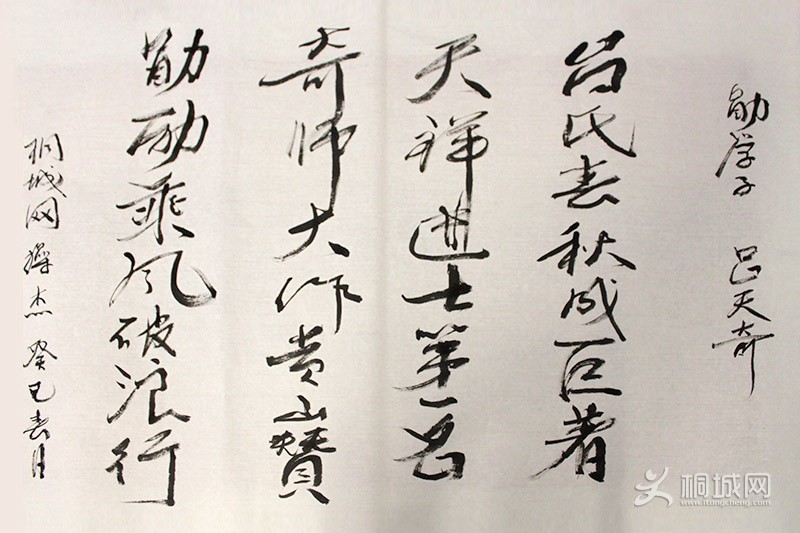 勖学子 吕天奇
吕氏春秋成巨著
天祥进士第一名
奇师大作山赞
勖励乘风破浪行
桐城网 杰 癸巳春月
桐城网
www.itongcheng.com